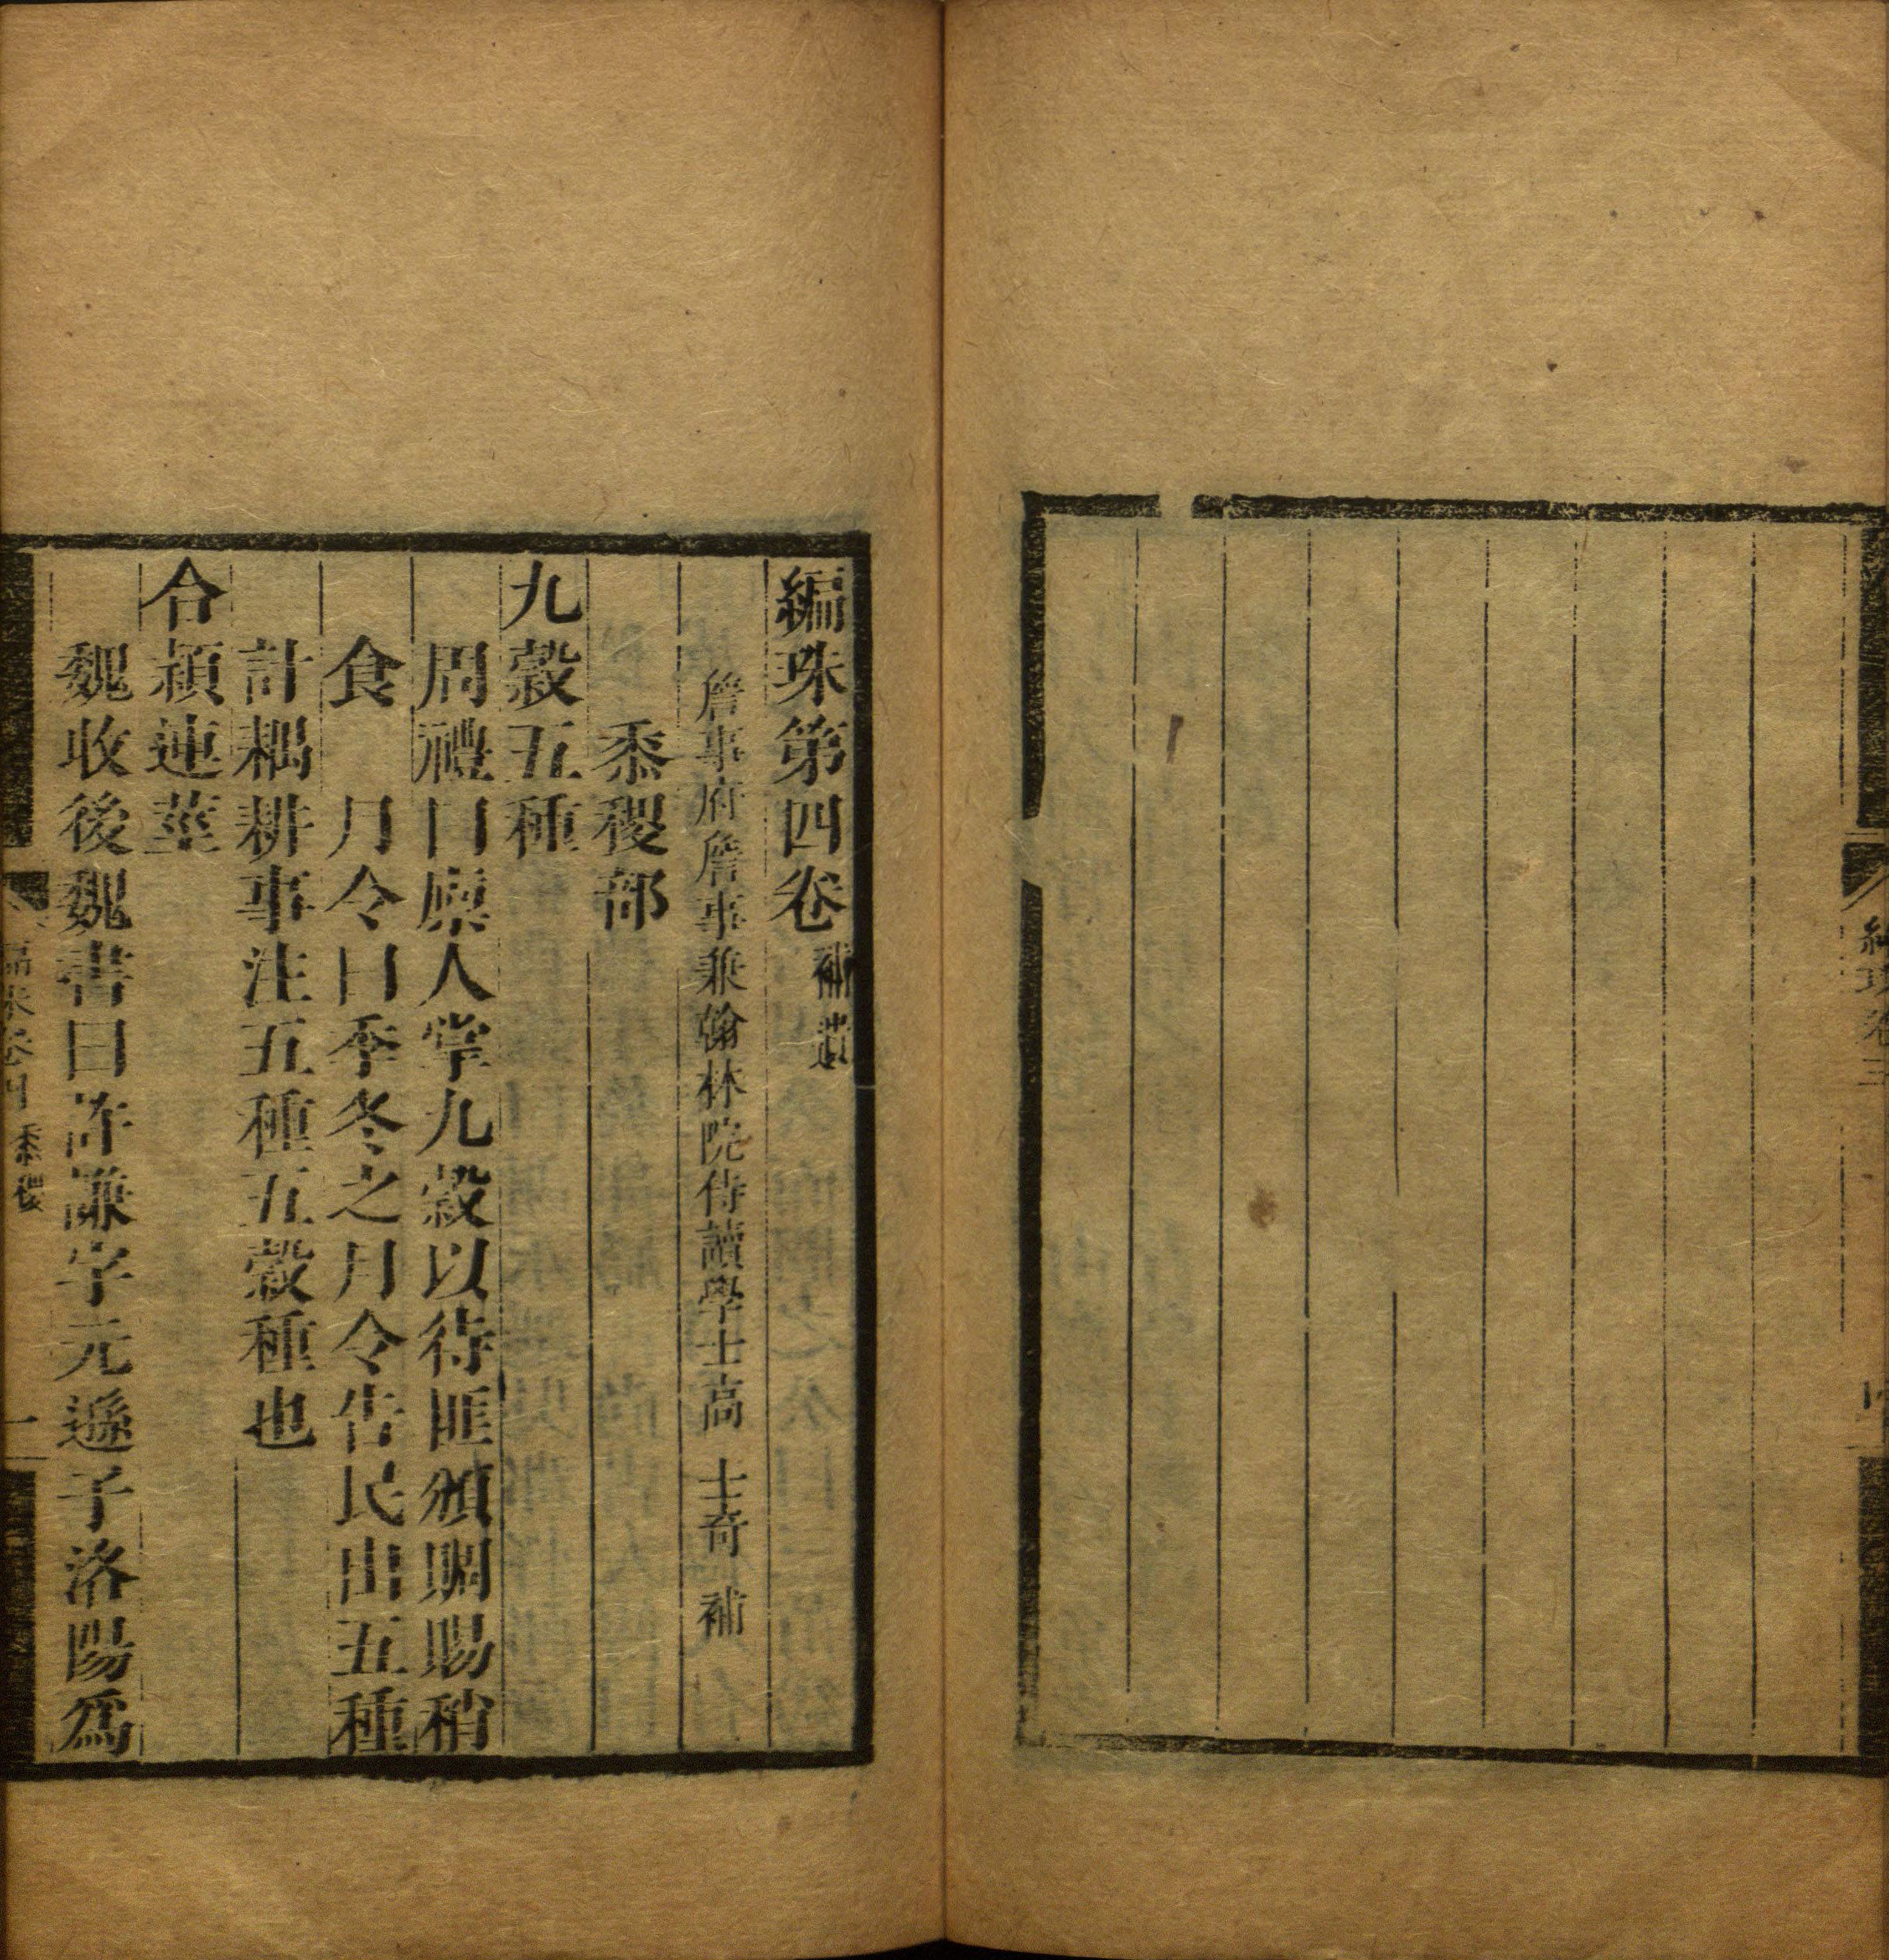 編珠第四卷補遺
詹事府詹事兼翰林院侍讀學士高 士奇 補
黍稷部
九穀五種
周禮曰廩人掌九穀以待匪頒賙賜稍
食 月令曰季冬之月令告民出五種
計耦耕事注五種五穀種也
合穎連莖
魏收後魏書曰許謙字元遜子洛陽為
編珠卷四 黍稷 一